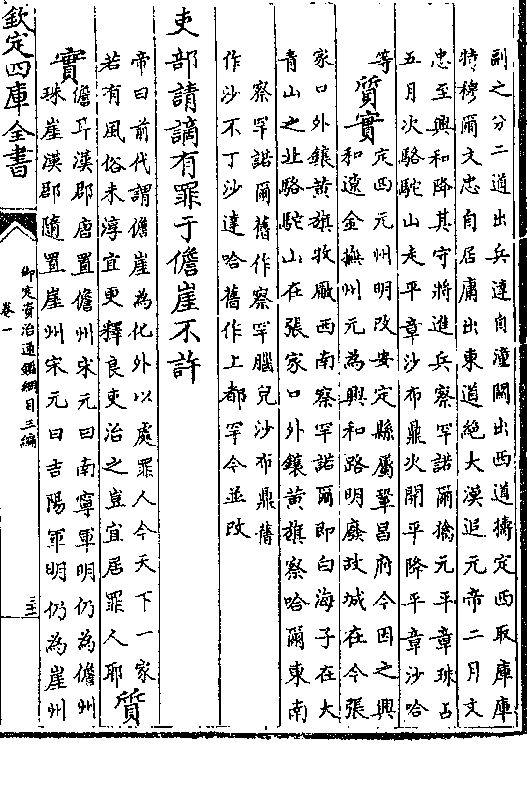 副之分二道出兵達自潼關出西道擣定西取庫庫
特穆爾文忠自居庸出東道絶大漠追元帝二月文
忠至興和降其守將進兵察罕諾爾擒元平章珠占
五月次駱駝山走平章沙布鼎次開平降平章沙哈
等
質實
定西元州明改安定縣屬鞏昌府今因之興
和遼金撫州元為興和路明廢故城在今張
家口外鑲黄旗牧廠西南察罕諾爾即白海子在大
青山之北駱駝山在張家口外鑲黄旗察哈爾東南
察罕諾爾舊作察罕腦兒沙布鼎舊
作沙不丁沙達哈舊作上都罕今並改
吏部請謫有罪于儋崖不許
帝曰前代謂儋崖為化外以處罪人今天下一家
若有風俗未淳宜更釋良吏治之豈宜居罪人耶
質
實
儋耳漢郡唐置儋州宋元曰南寧軍明仍為儋州
珠崖漢郡隨置崖州宋元曰吉陽軍明仍為崖州
欽定四庫全書
御定資治通鑑綱目三編
卷一